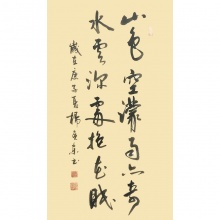 山色空濛雨亦奇
水雲深處抱花眠
歲在庚子夏楊書